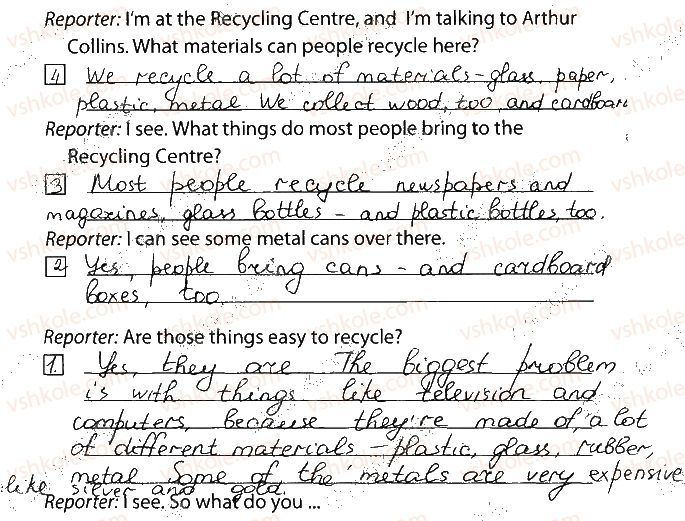 Reporter: I'm at the Recycling Centre, and I'm talking to Arthur
Collins. What materials can people recycle here?
4 We recycle a lot of materials - glass, paper,
plastic, metal. We collect wood, too, and cardboar
Reporter: I see. What things do most people bring to the
Recycling Centre?
3 Most people recycle newspapers and
magazines, glass bottles - and plastic bottles, too.
Reporter: I can see some metal cans over there.
2 Yes, people bring cans - and cardboard
boxes, too.
Reporter: Are those things easy to recycle?
1. Yes, they are. The biggest problem
is with things like television and
computers, because they're made of, a lot
of different materials - plastic, glass, rubber,
metal. Some of the metals are very expensive
like silver and gold.
Reporter: I see. So what do you ...